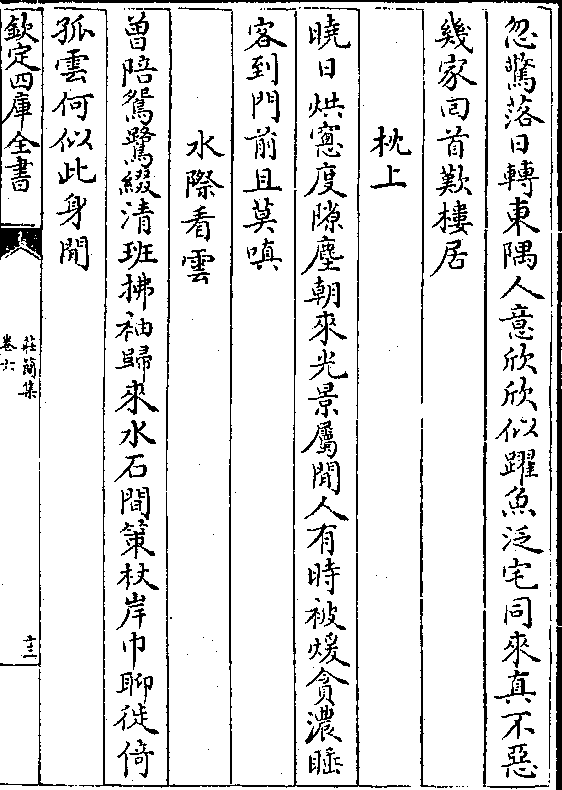 忽驚落日轉東隅人意欣欣似躍魚泛宅同來真不惡
幾家囘首歎樓居
枕上
曉日烘窻度隙塵朝來光景屬閒人有時被煖貪濃睡
客到門前且莫嗔
水際看雲
曾陪鴛鷺綴清班拂袖歸來水石間䇿杖岸巾聊徙倚
孤雲何似此身閒
欽定四庫全書
莊簡集
卷六
十三